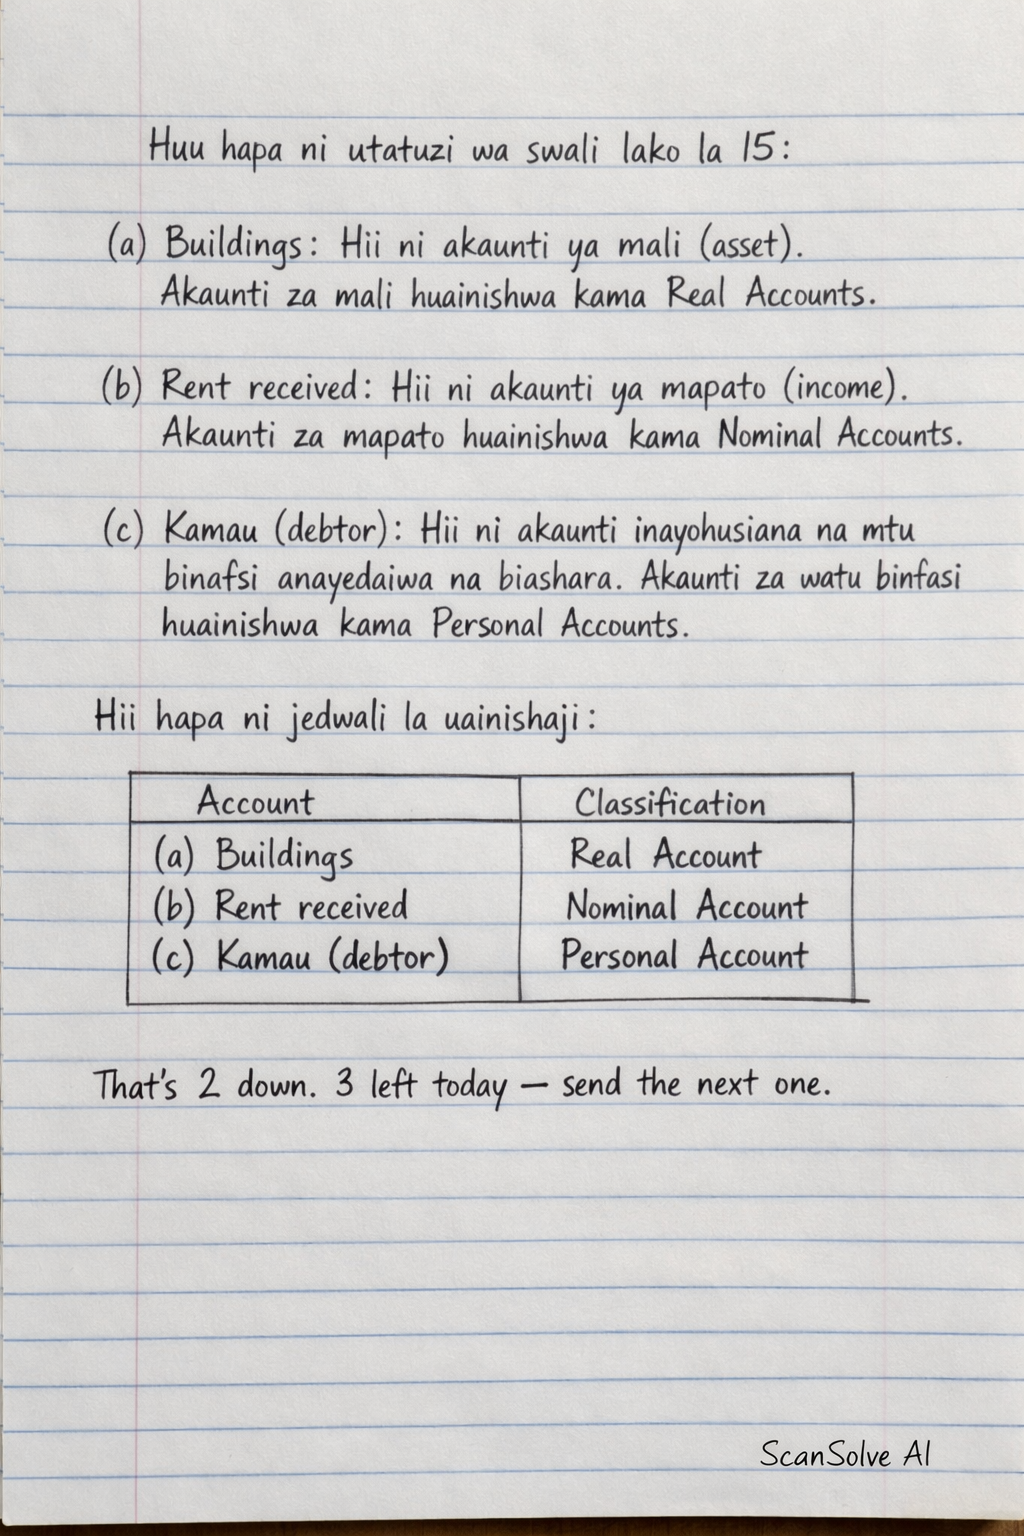 Huu hapa ni utatuzi wa swali lako la 15:
(a) Buildings: Hii ni akaunti ya mali (asset).
Akaunti za mali huainishwa kama Real Accounts.
(b) Rent received: Hii ni akaunti ya mapato (income).
Akaunti za mapato huainishwa kama Nominal Accounts.
(c) Kamau (debtor): Hii ni akaunti inayohusiana na mtu
binafsi anayedaiwa na biashara. Akaunti za watu binfasi
huainishwa kama Personal Accounts.
Hii hapa ni jedwali la uainishaji:
Account Classification
(a) Buildings Real Account
(b) Rent received Nominal Account
(c) Kamau (debtor) Personal Account
That's 2 down. 3 left today — send the next one.
ScanSolve AI